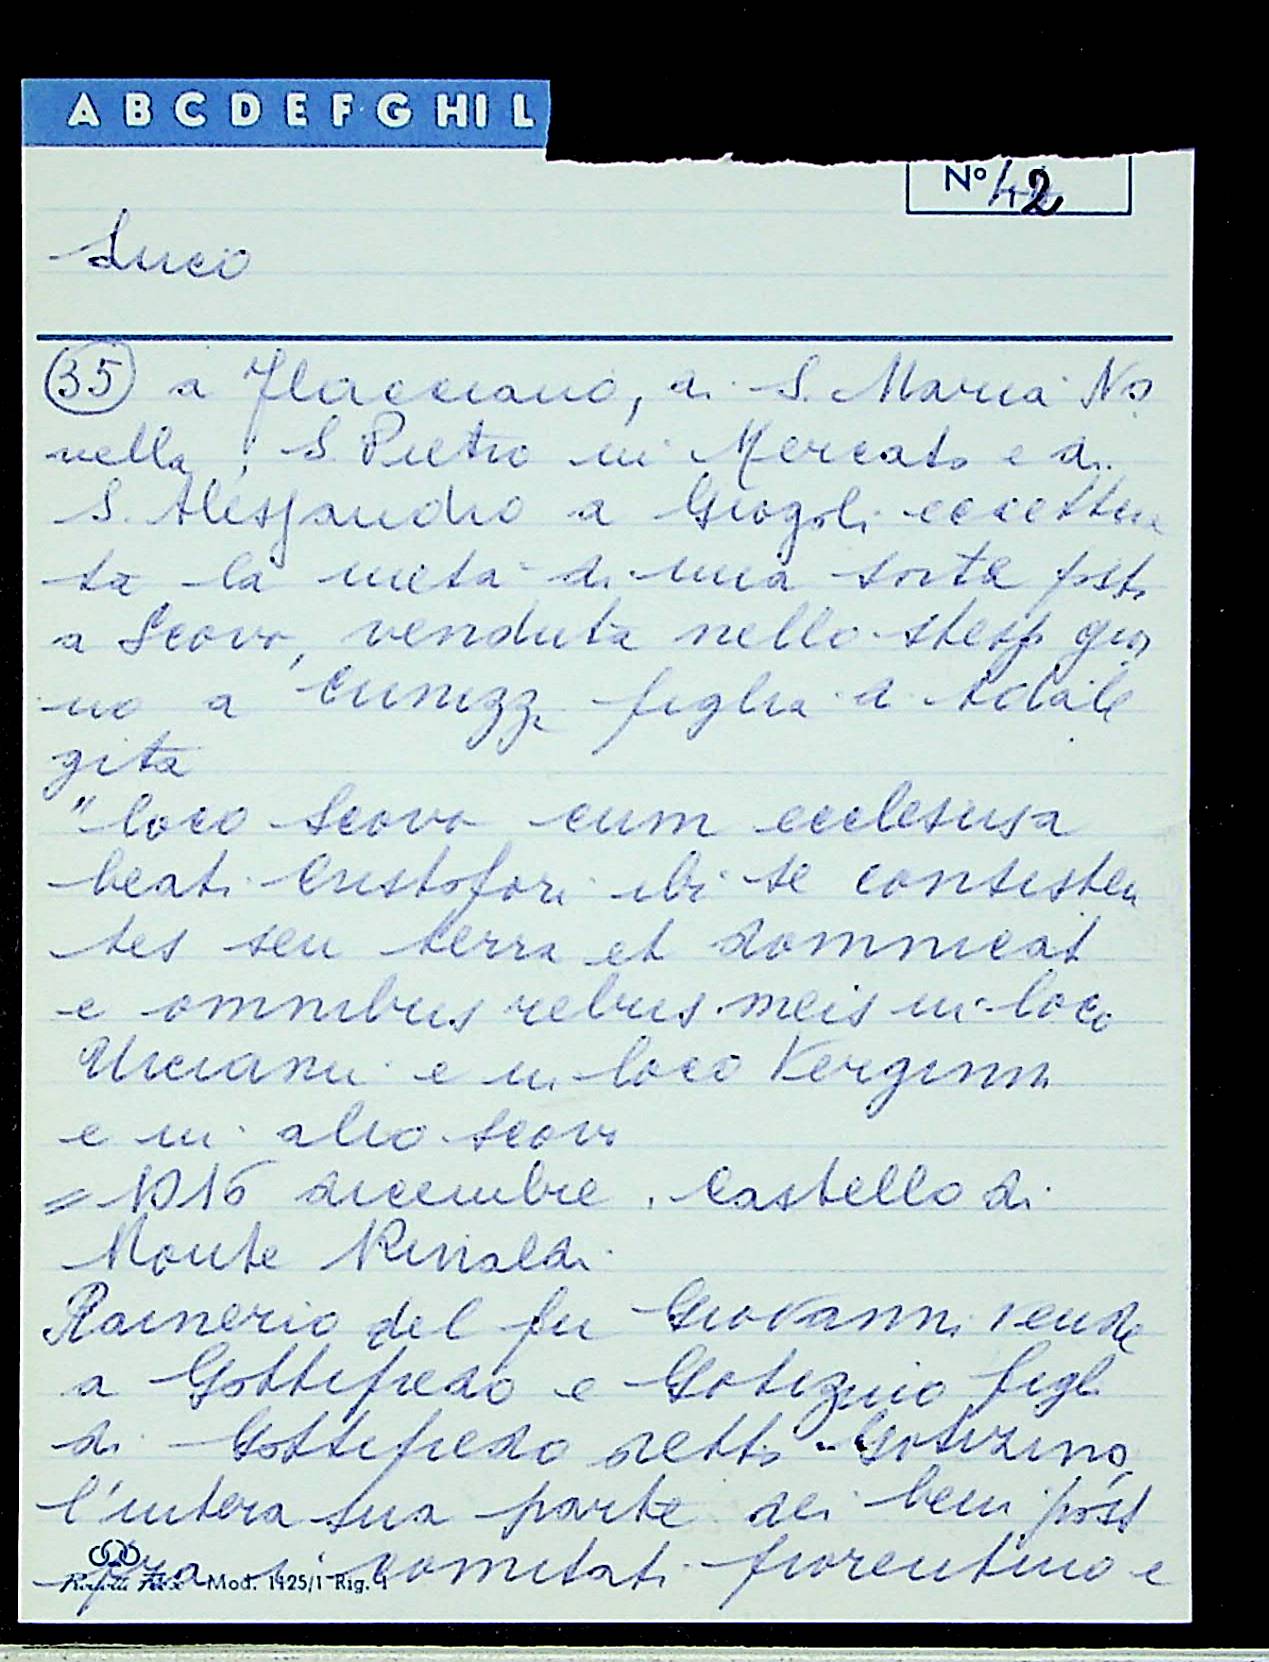 A B C D E F G HI L
Nº 42
Luco
(35) a Flacciano, di S. Maria No
vella, S. Pietro in Mercato e di
S. Alessandro a Giogoli eccettua
ta la metà di una sorte posta
a Scovo, venduta nello stesso gior
no a Cunizza figlia di Adale
gita
"loco Scovo cum ecclesiisa
beati Cristofori ibi se consisten
tes seu terra et domnicat
e omnibus rebus meis in loco
e in loco
e in alio scovo
= 1016 dicembre, Castello di
Monte Rinaldi
Rainerio del fu Giovanni vende
a Gottifredo e Gotizino figli
di Gottifredo detto "Gotizino,
l'intera sua parte dei beni posti
fra i comitati fiorentino e
Mod. 1925/1 Rig. 1